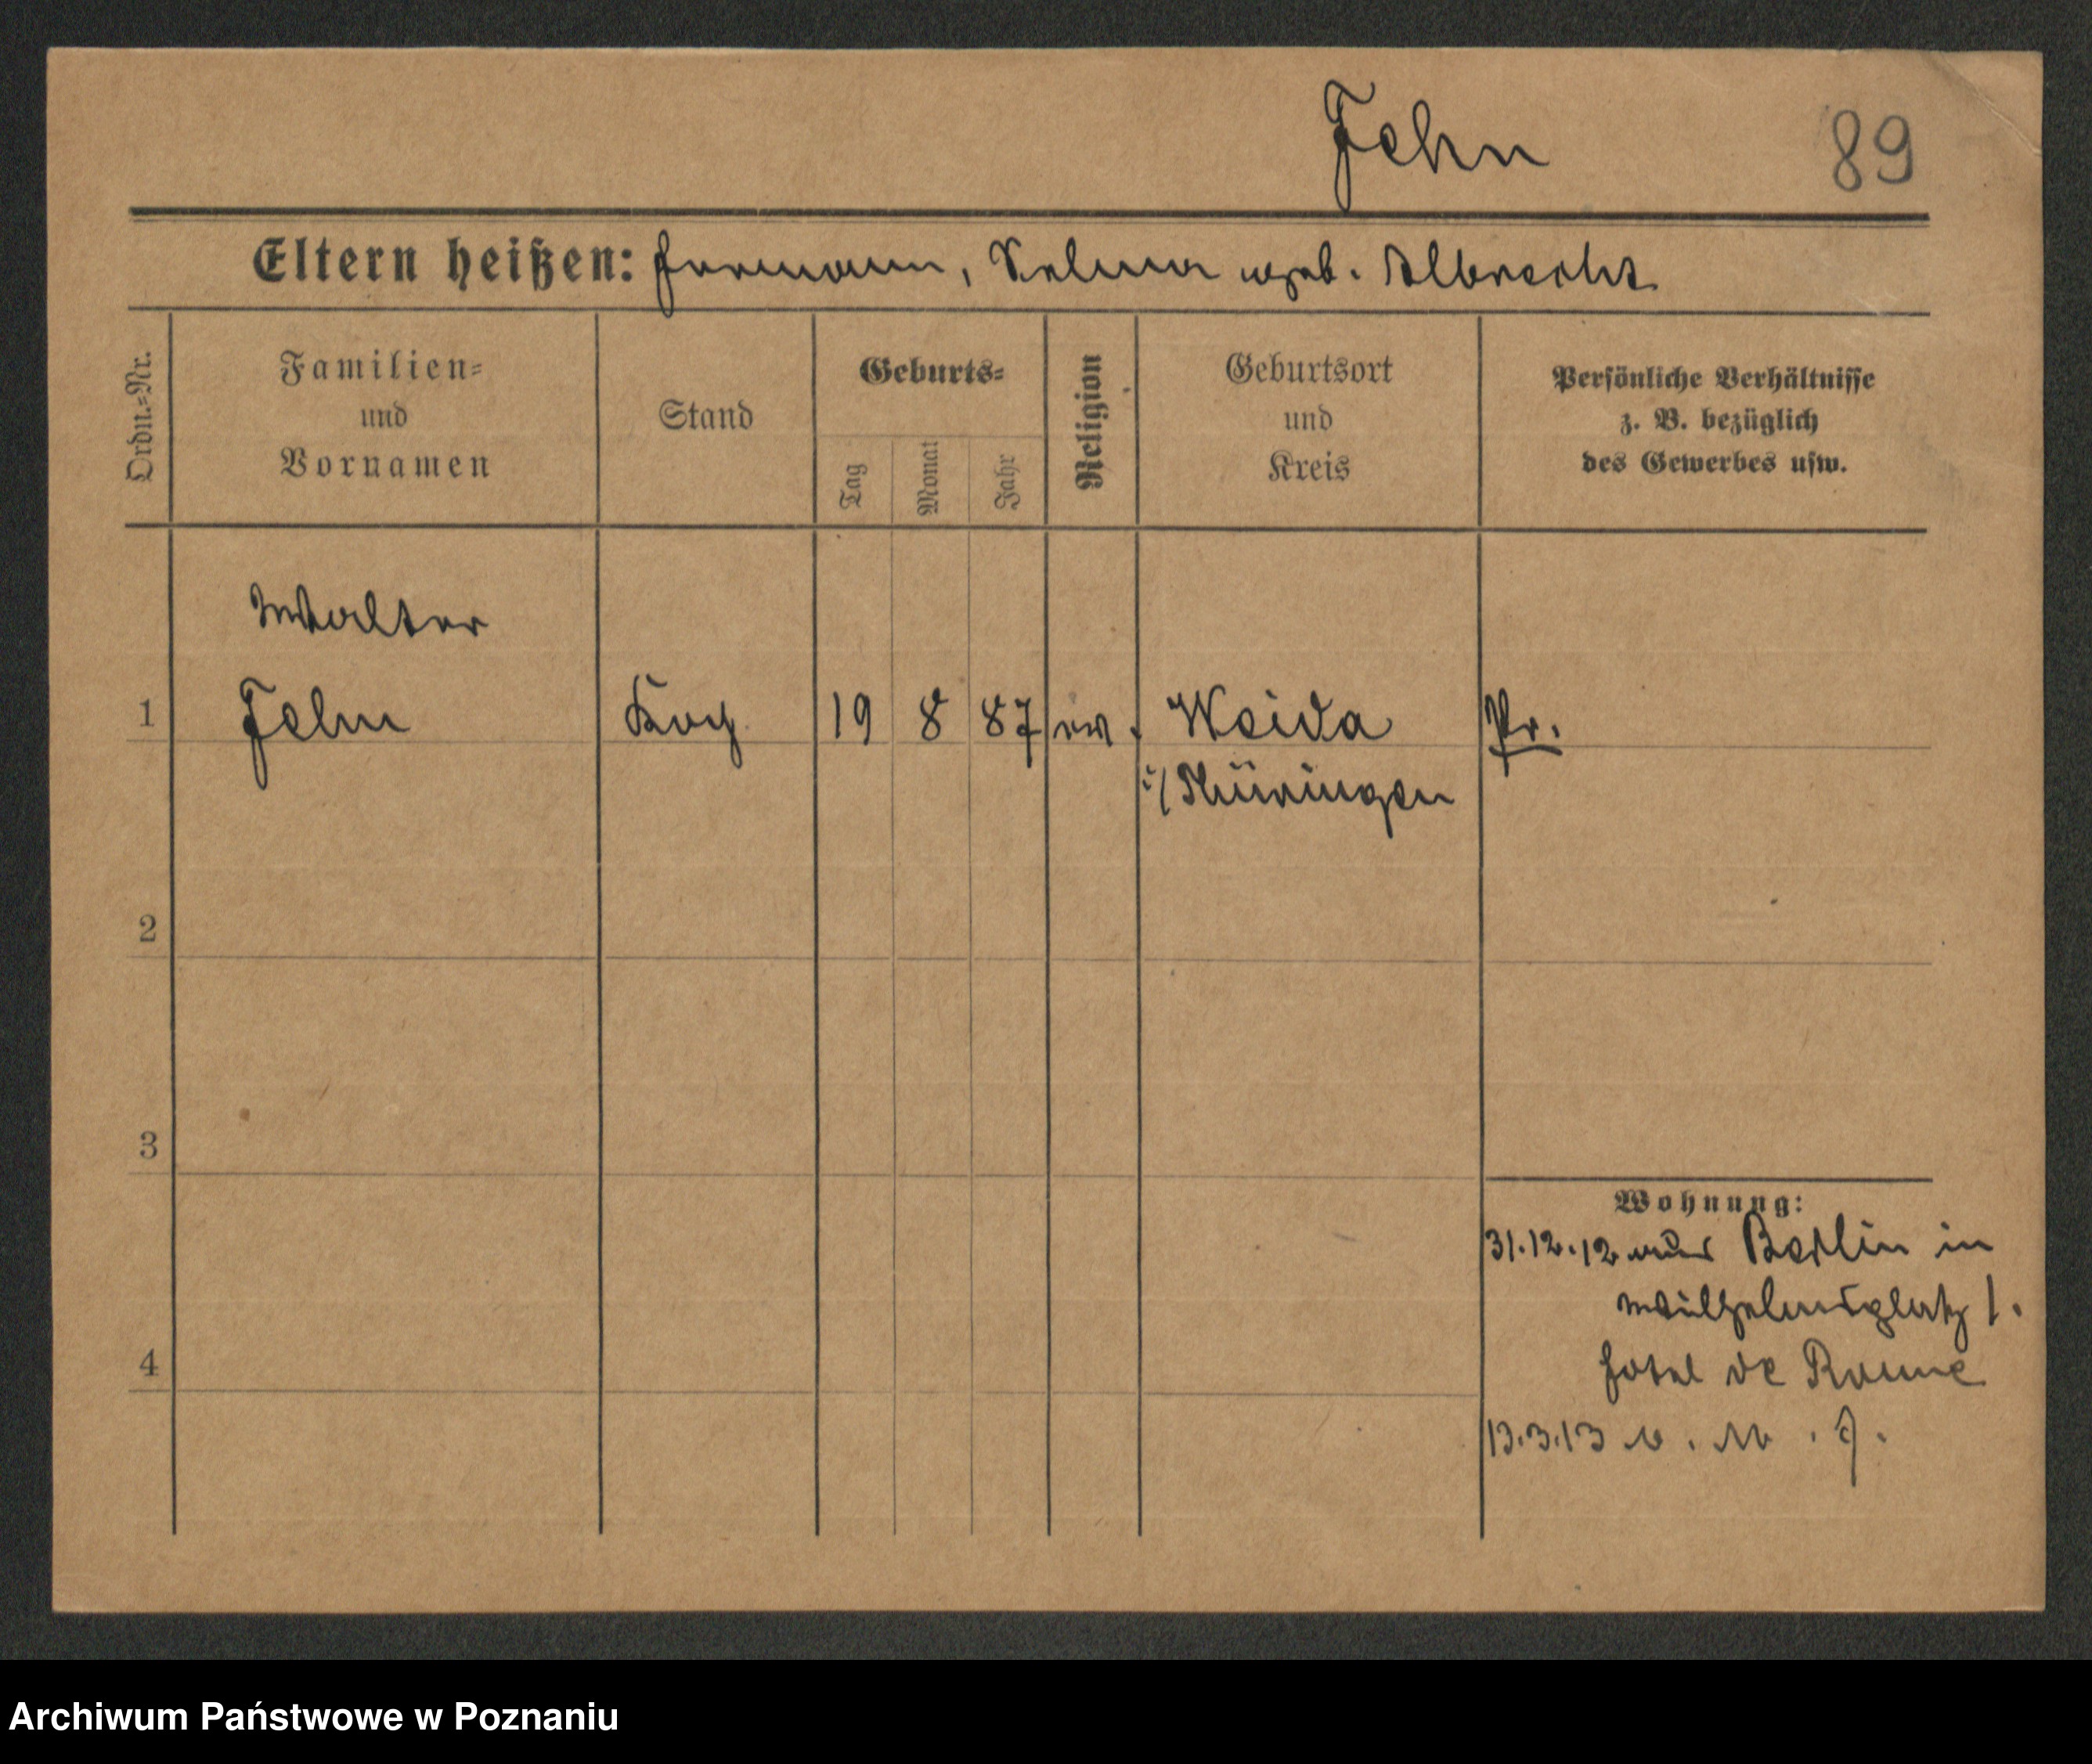 Jehn
89
Eltern heißen: Hermann, Selma geb. Albrecht
Ordn.=Nr.
Familien=
und
Vornamen
Stand
Geburts=
Tag
Monat
Jahr
Religion
Geburtsort
und
Kreis
Persönliche Verhältnisse
z. B. bezüglich
des Gewerbes usw.
Walter
1
Jehn
19
8
87
ev.
Weida
Pr.
i/Thüringen
2
3
4
Wohnung:
31.12.12 aus Berlin in
Wilhelmsplatz 1.
Hotel de Rome
13.3.13
Archiwum Państwowe w Poznaniu